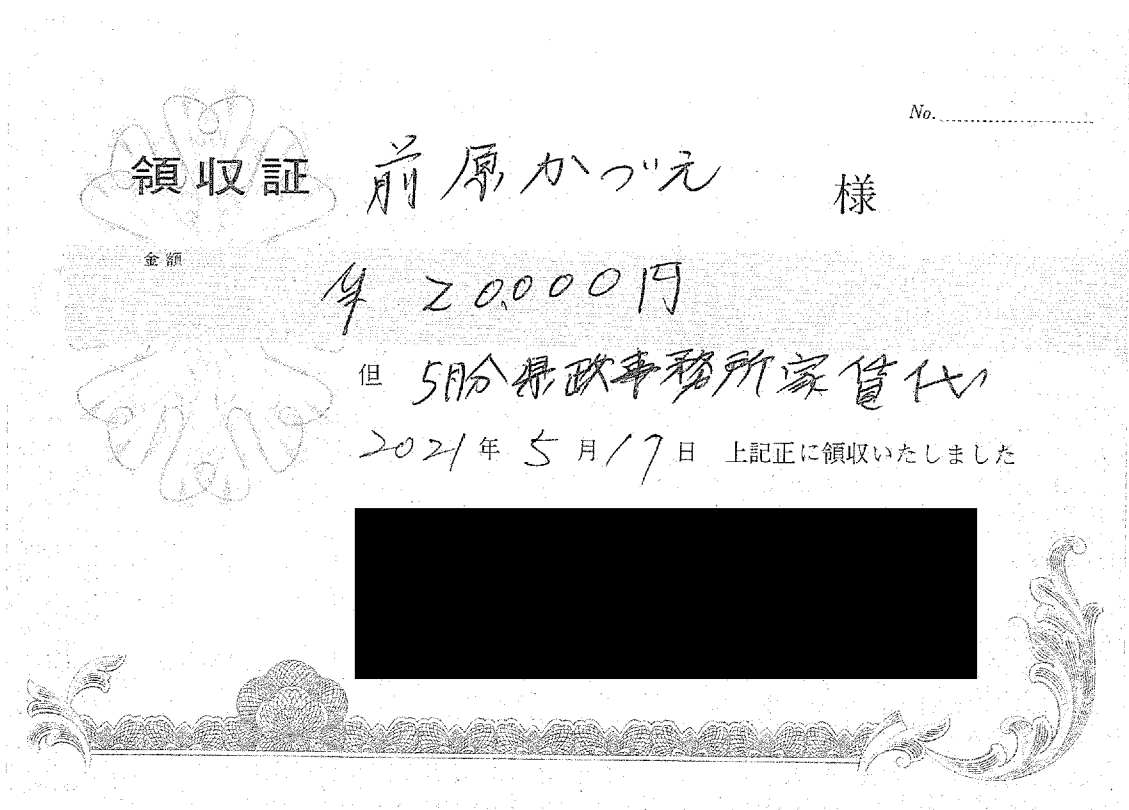 No.
領収証 前原かづえ 様
金額
¥ 20,000円
但 5月分県政事務所家賃代
2021年 5月17日 上記正に領収いたしました